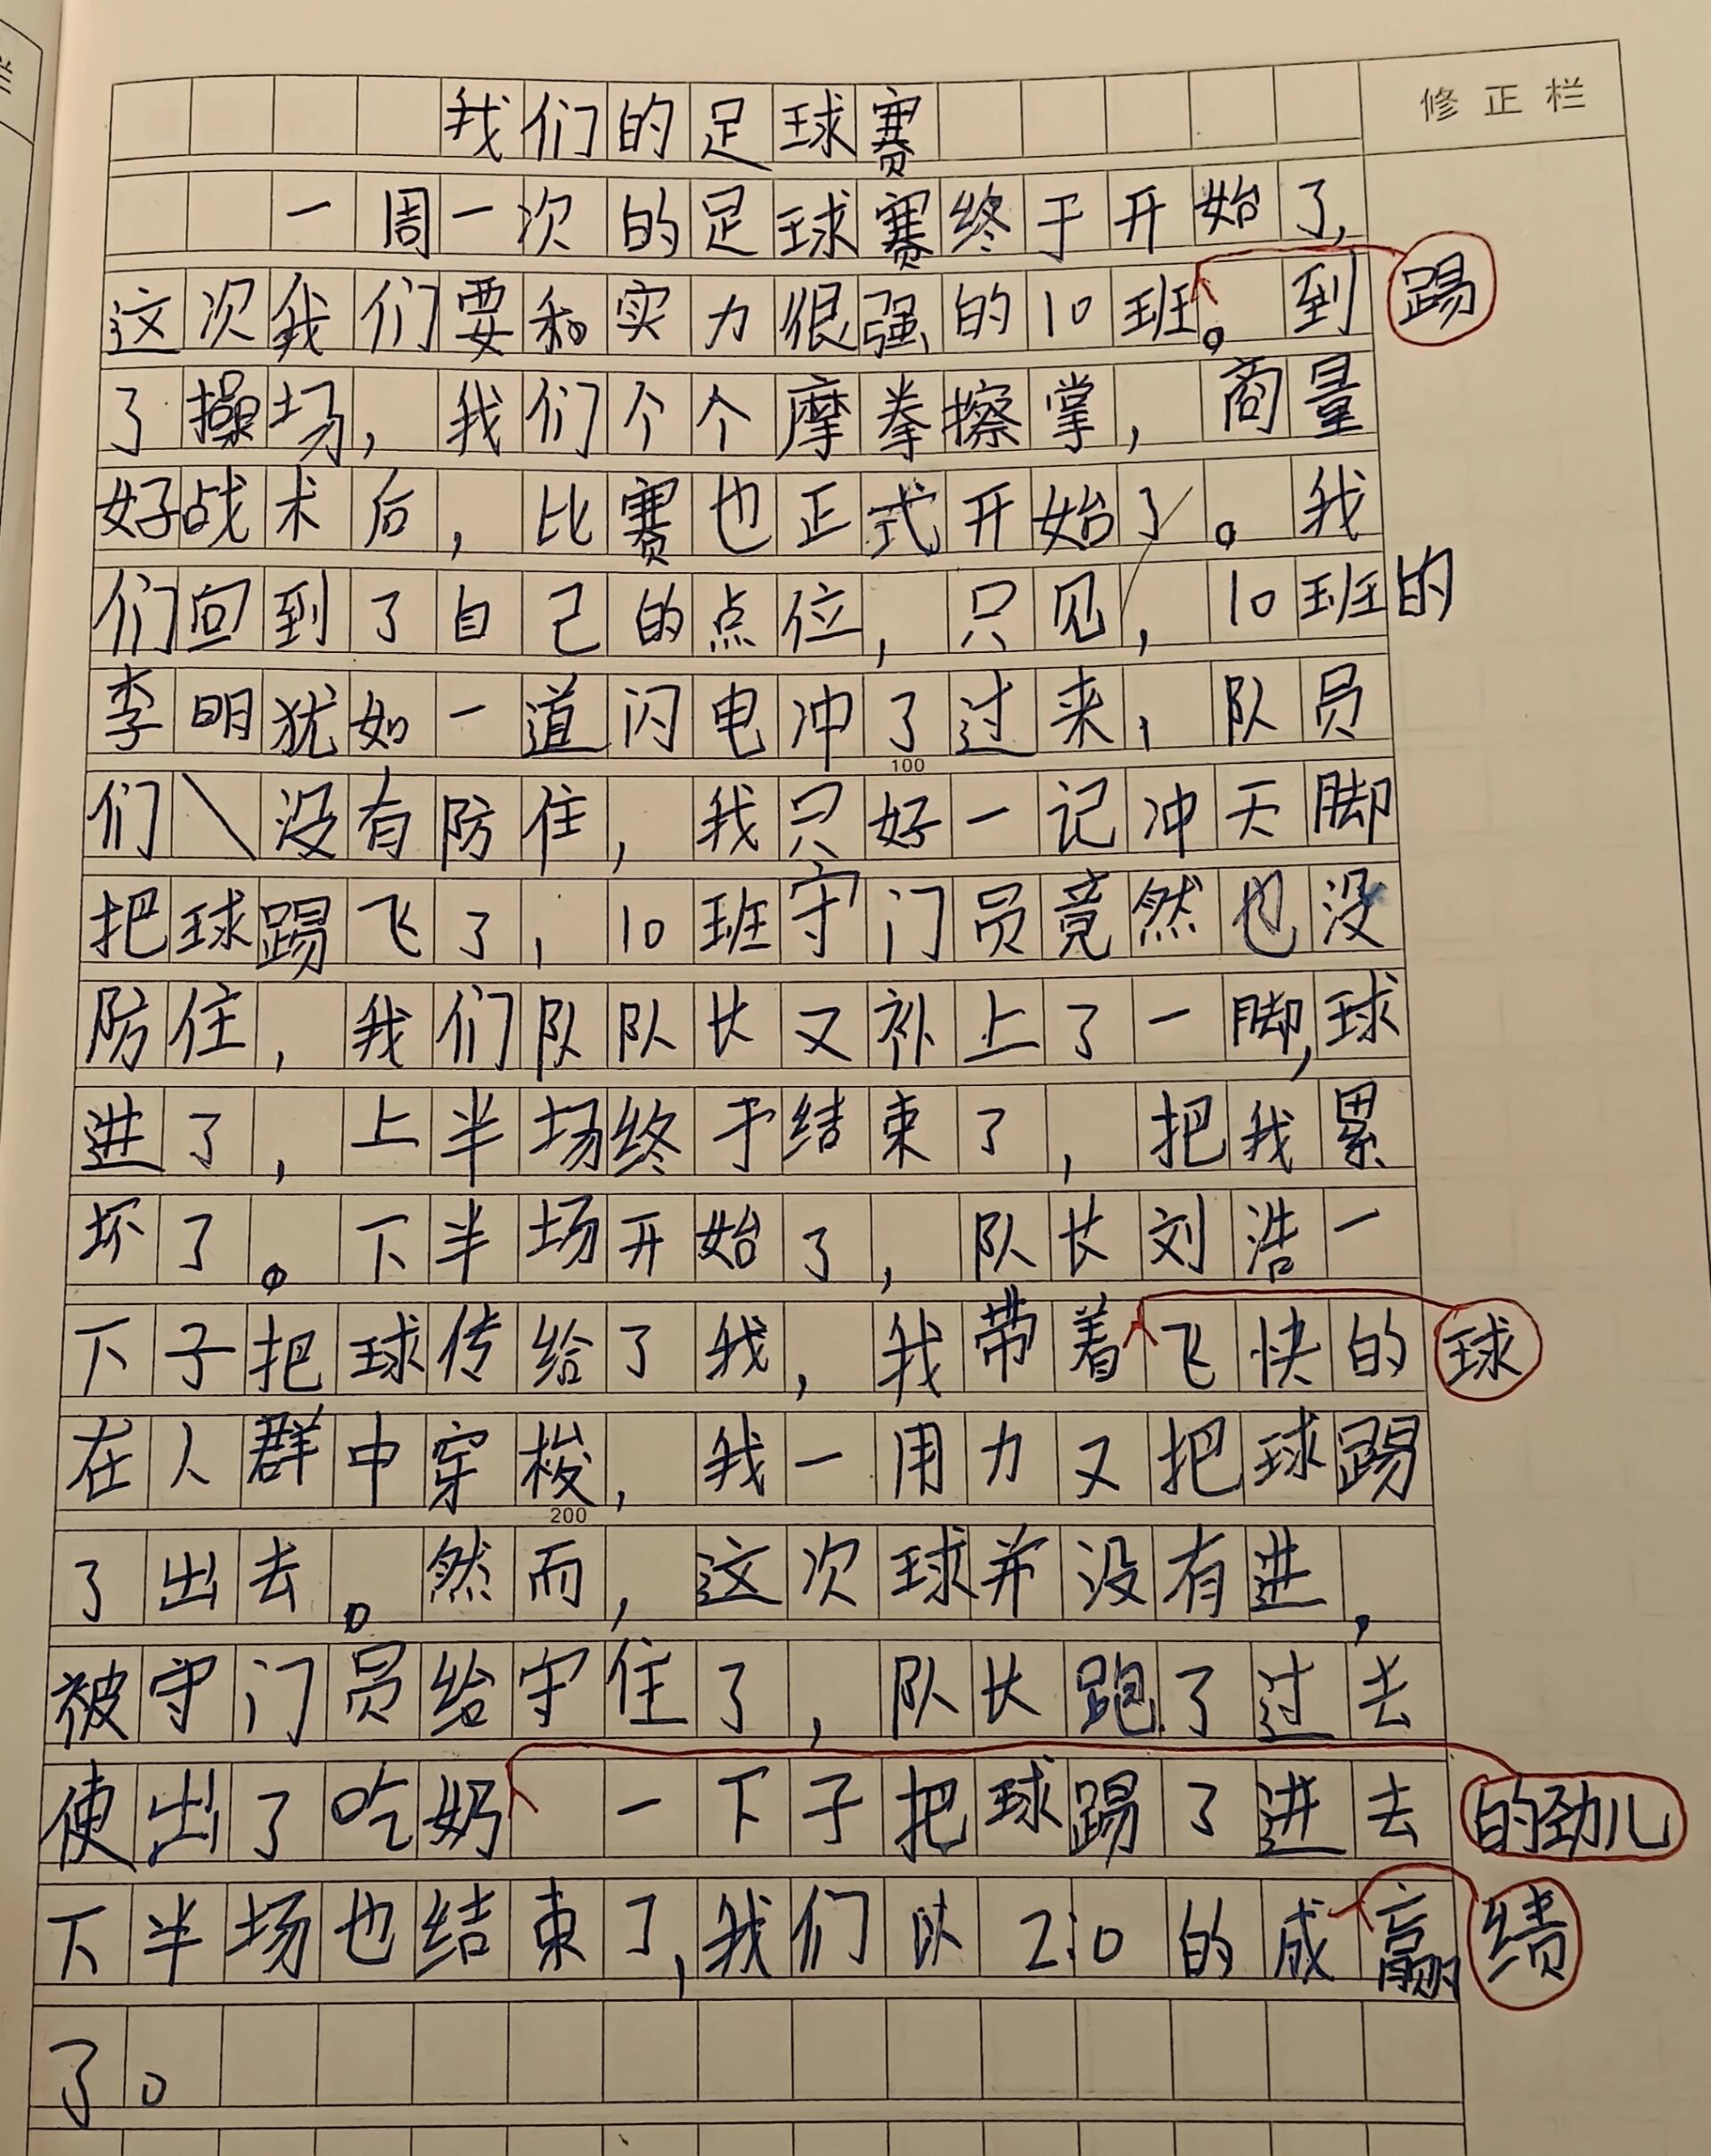 修正栏
我们的足球赛
一周一次的足球赛终于开始了,
这次我们要和实力很强的10班踢。到
了操场,我们个个摩拳擦掌,商量
好战术后,比赛也正式开始了。我
们回到了自己的点位,只见,10班的
李明犹如一道闪电冲了过来,队员
们没有防住,我只好一记冲天脚
把球踢飞了,10班守门员竟然也没
防住,我们队队长又补上了一脚,球
进了,上半场终于结束了,把我累
坏了。下半场开始了,队长刘浩一
下子把球传给了我,我带着球飞快的
在人群中穿梭,我一用力又把球踢
100
200
了出去。然而,这次球并没有进,
被守门员给守住了,队长跑了过去
使出了吃奶的劲儿一下子把球踢了进去
下半场也结束了,我们以2:0的成绩赢
了。